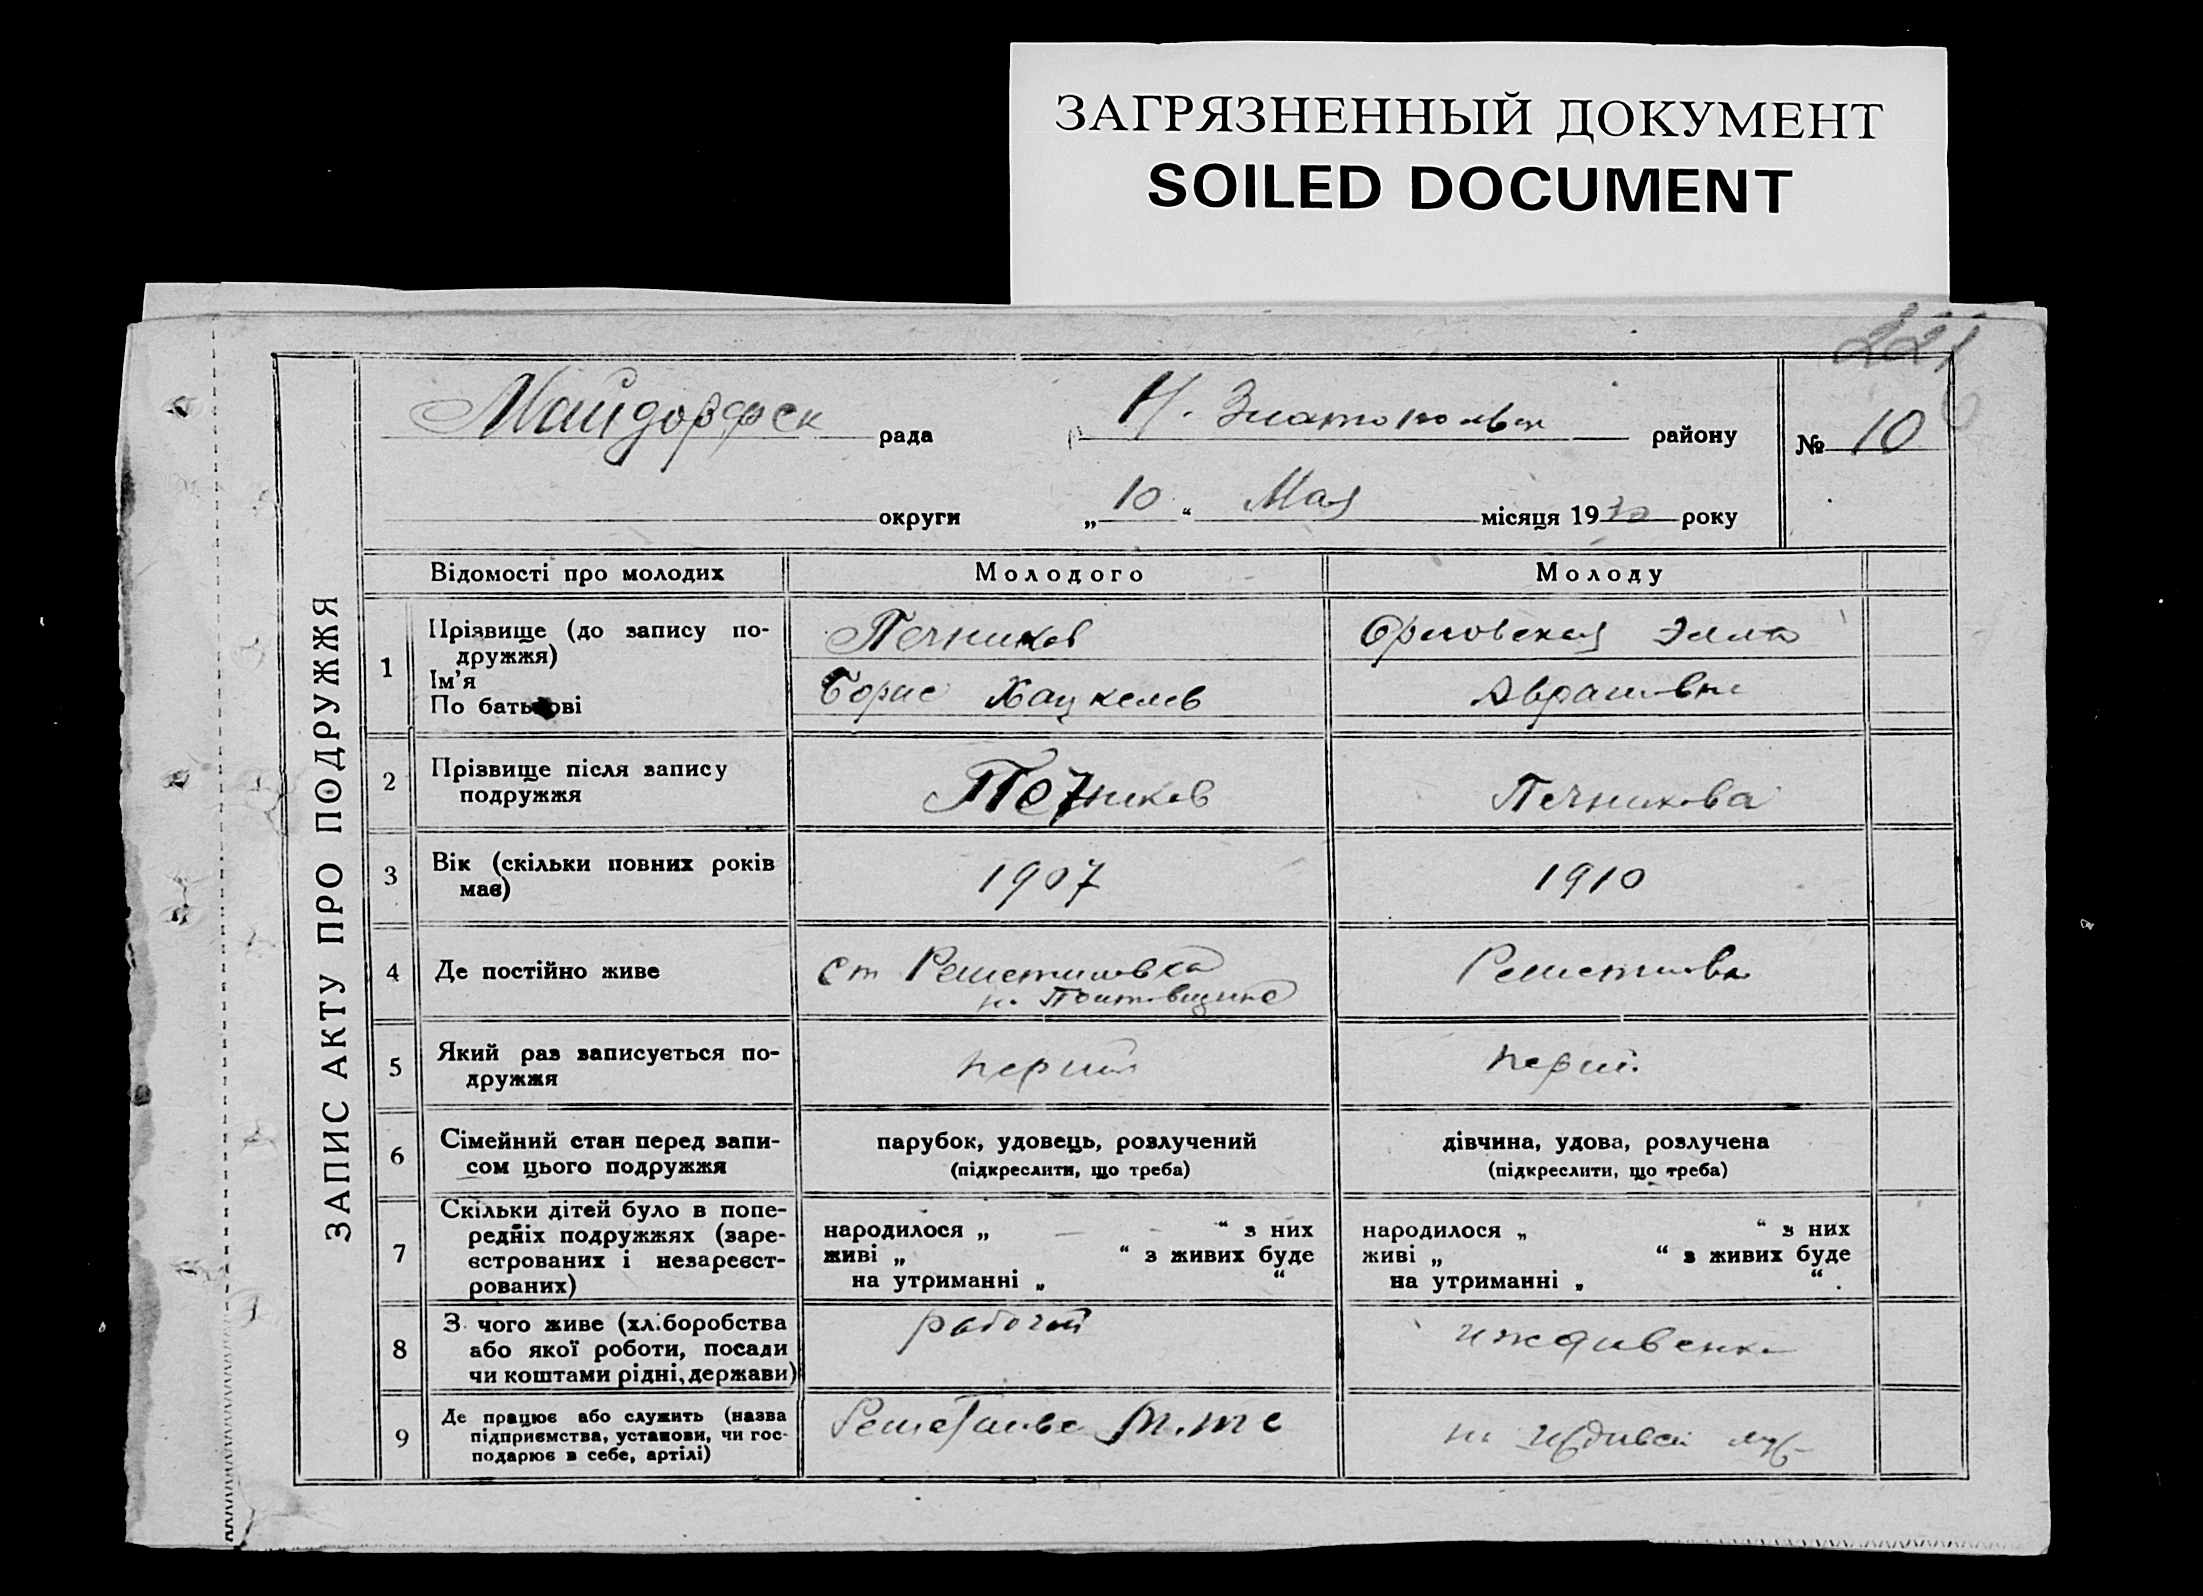 ЗАГРЯЗНЕННЫЙ ДОКУМЕНТ
SOILED DOCUMENT
ЗАПИС АКТУ ПРО ПОДРУЖЖЯ
Майдорфск рада
Н. району
№ 10
округи
„ 10 “ Мая місяця 19 року
Відомості про молодих
Молодого
Молоду
1
Прізвище (до запису по-
дружжя)
Ім'я
По батькові
Печников
Борис Хацкелев
Элла
2
Прізвище після запису
подружжя
Печников
Печникова
3
Вік (скільки повних років
має)
1907
1910
4
Де постійно живе
ст
5
Який раз записується по-
дружжя
перший
перший
6
Сімейний стан перед запи-
сом цього подружжя
парубок, удовець, розлучений
(підкреслити, що треба)
дівчина, удова, розлучена
(підкреслити, що треба)
7
Скільки дітей було в попе-
редніх подружжях (заре-
єстрованих і незареєст-
рованих)
народилося „ — “ з них
живі „ “ з живих буде
на утриманні „ “
народилося „ “ з них
живі „ “ з живих буде
на утриманні „ “
8
З чого живе (хліборобства
або якої роботи, посади
чи коштами рідні, держави)
рабочий
9
Де працює або служить (назва
підприємства, установи, чи гос-
подарює в себе, артілі)
М.Т.С